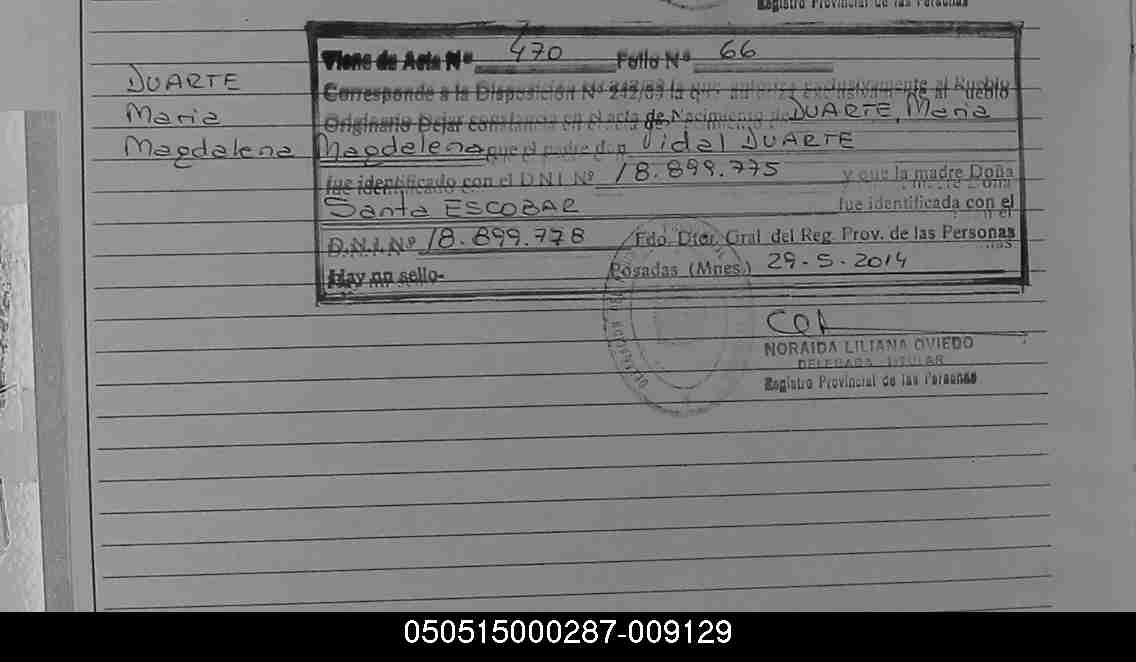 Registro Provincial de las Personas
Viene de Acta Nº 470 Folio Nº 66
DUARTE
Maria
Magdalena
Corresponde a la Disposición Nº 242/09 la que autoriza exclusivamente al Pueblo
Originario Dejar constancia en el acta de Nacimiento de DUARTE, Maria
Magdalena que el padre don Vidal DUARTE
fue identificado con el D.N.I. Nº 18.899.775 y que la madre Doña
Santa ESCOBAR fue identificada con el
D.N.I. Nº 18.899.778 Fdo. Dtor. Gral del Reg. Prov. de las Personas
Hay un sello- Posadas (Mnes.) 29-5-2014
NORAIDA LILIANA OVIEDO
DELEGADA TITULAR
Registro Provincial de las Personas
050515000287-009129